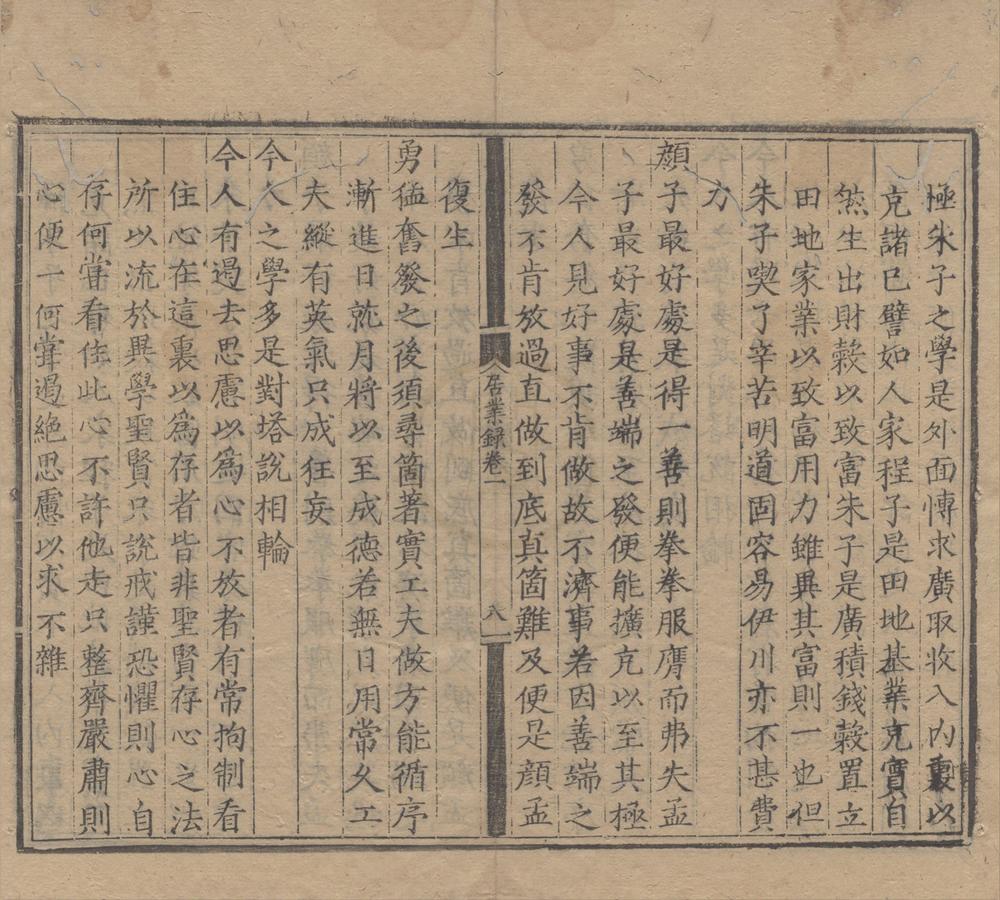 極朱子之學是外面博求廣取收入內裏以
克諸已譬如人家程子是田地基業克實自
然生出財糓以致富朱子是廣積錢糓置立
田地家業以致富用力雖異其富則一也但
朱子喫了辛苦明道固容易伊川亦不甚費
力
顔子最好處是得一善則拳拳服膺而弗失孟
子最好處是善端之發便能擴充以至其極
今人見好事不肯做故不濟事若因善端之
發不肯放過直做到底真箇難及便是顔孟
居業録卷一
八
復生
勇猛奮發之後須尋箇著實工夫做方能循序
漸進日就月將以至成德若無日用常久工
夫縱有英氣只成狂妄
今人之學多是對塔說相輪
今人有過去思慮以爲心不放者有常拘制看
住心在這裏以爲存者皆非聖賢存心之法
所以流於異學聖賢只說戒謹恐懼則心自
存何甞看住此心不許他走只整齊嚴肅則
心便一何甞遏絕思慮以求不雜